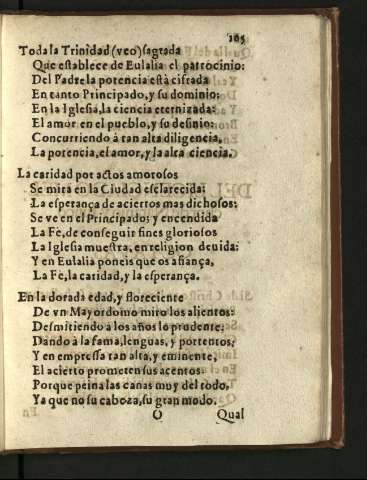 105
Toda la Trinidad (veo) sagrada
Que establece de Eulalia el patrocinio:
Del Padre la potencia està cifrada
En tanto Principado, y su dominio:
En la Iglesia, la ciencia eternizada:
El amor en el pueblo, y su desinio:
Concurriendo à tan alta diligencia,
La potencia, el amor, y la alta ciencia.
La caridad por actos amorosos
Se mira en la Ciudad esclarecida:
La esperança de aciertos mas dichosos:
Se ve en el Principado; y encendida
La Fe, de conseguir fines gloriosos
La Iglesia muestra, en religion deuida:
Y en Eulalia poneis que os afiança,
La Fe, la caridad, y la esperança.
En la dorada edad, y floreciente
De vn Mayordomo miro los alientos:
Desmitiendo à los años lo prudente;
Dando à la fama, lenguas, y portentos;
Y en empressa tan alta, y eminente,
El acierto prometen sus acentos
Porque peina las canas muy del todo,
Ya que no su cabeza, su gran modo.
O Qual